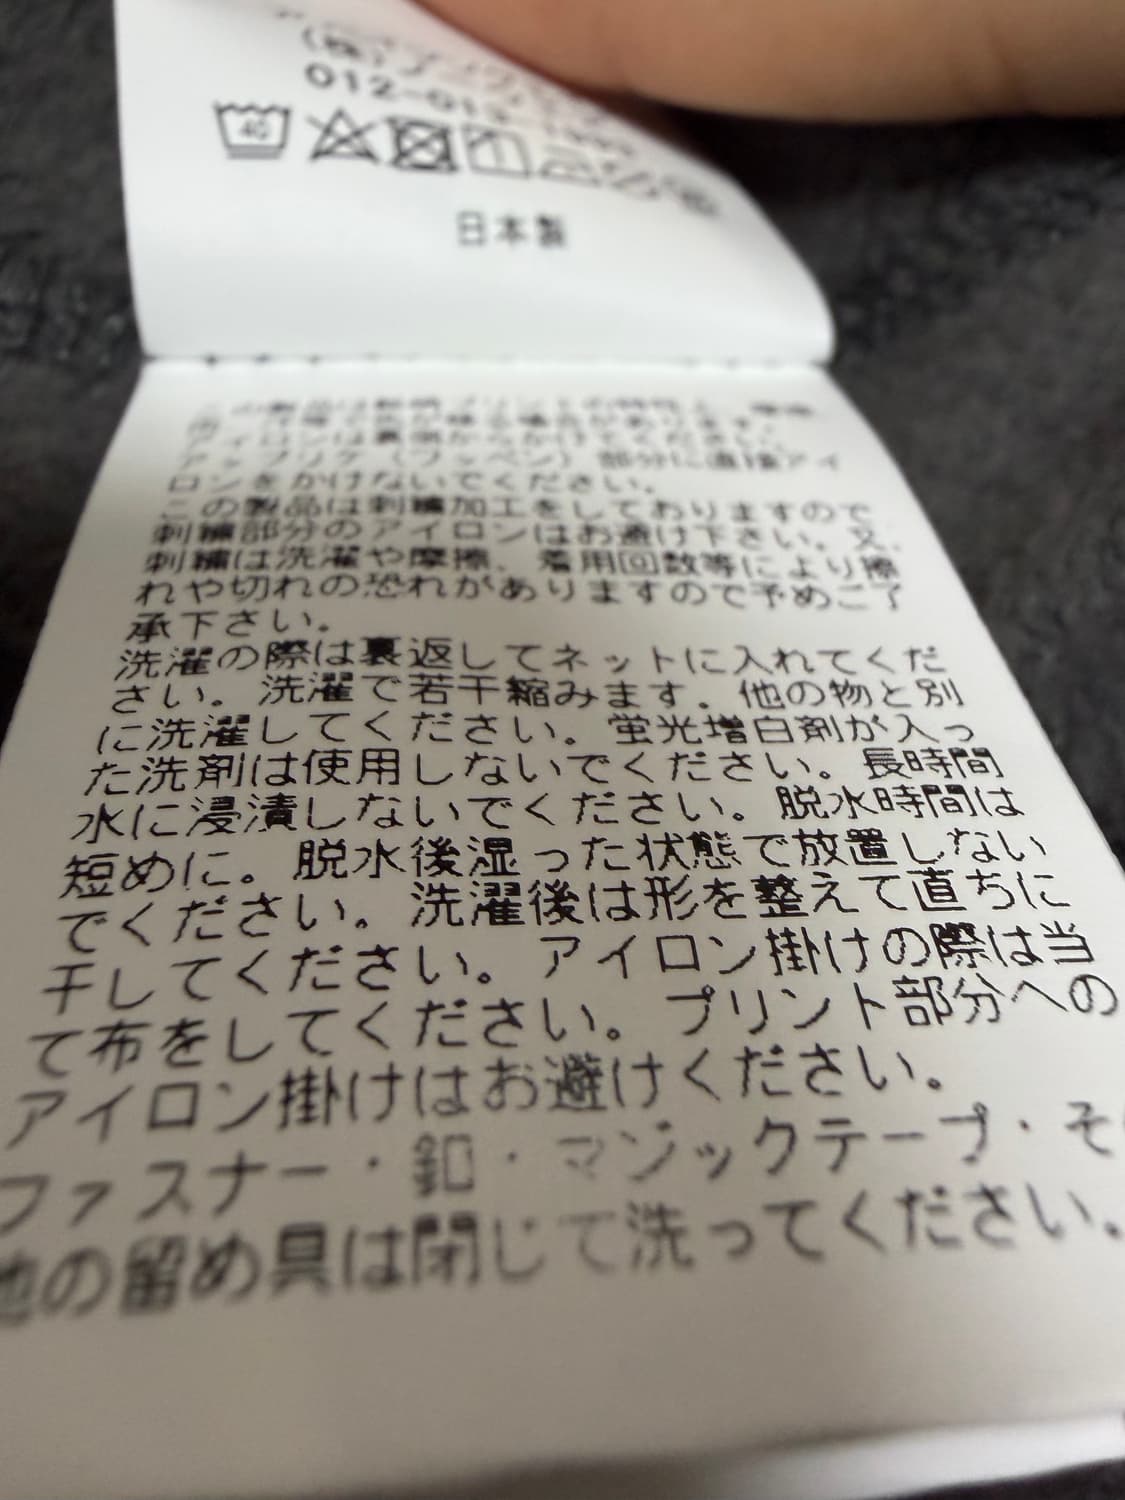 (株)
012-01
40
日本製
アイロンは裏側からかけてください。
アップリケ(ワッペン)部分に直接アイ
ロンをかけないでください。
この製品は刺繍加工をしておりますので
刺繍部分のアイロンはお避け下さい。又、
刺繍は洗濯や摩擦、着用回数等により擦
れや切れの恐れがありますので予めご了
承下さい。
洗濯の際は裏返してネットに入れてくだ
さい。洗濯で若干縮みます。他の物と別
に洗濯してください。蛍光増白剤が入っ
た洗剤は使用しないでください。長時間
水に浸漬しないでください。脱水時間は
短めに。脱水後湿った状態で放置しない
でください。洗濯後は形を整えて直ちに
干してください。アイロン掛けの際は当
て布をしてください。プリント部分への
アイロン掛けはお避けください。
ファスナー・釦・マジックテープ・その
他の留め具は閉じて洗ってください。